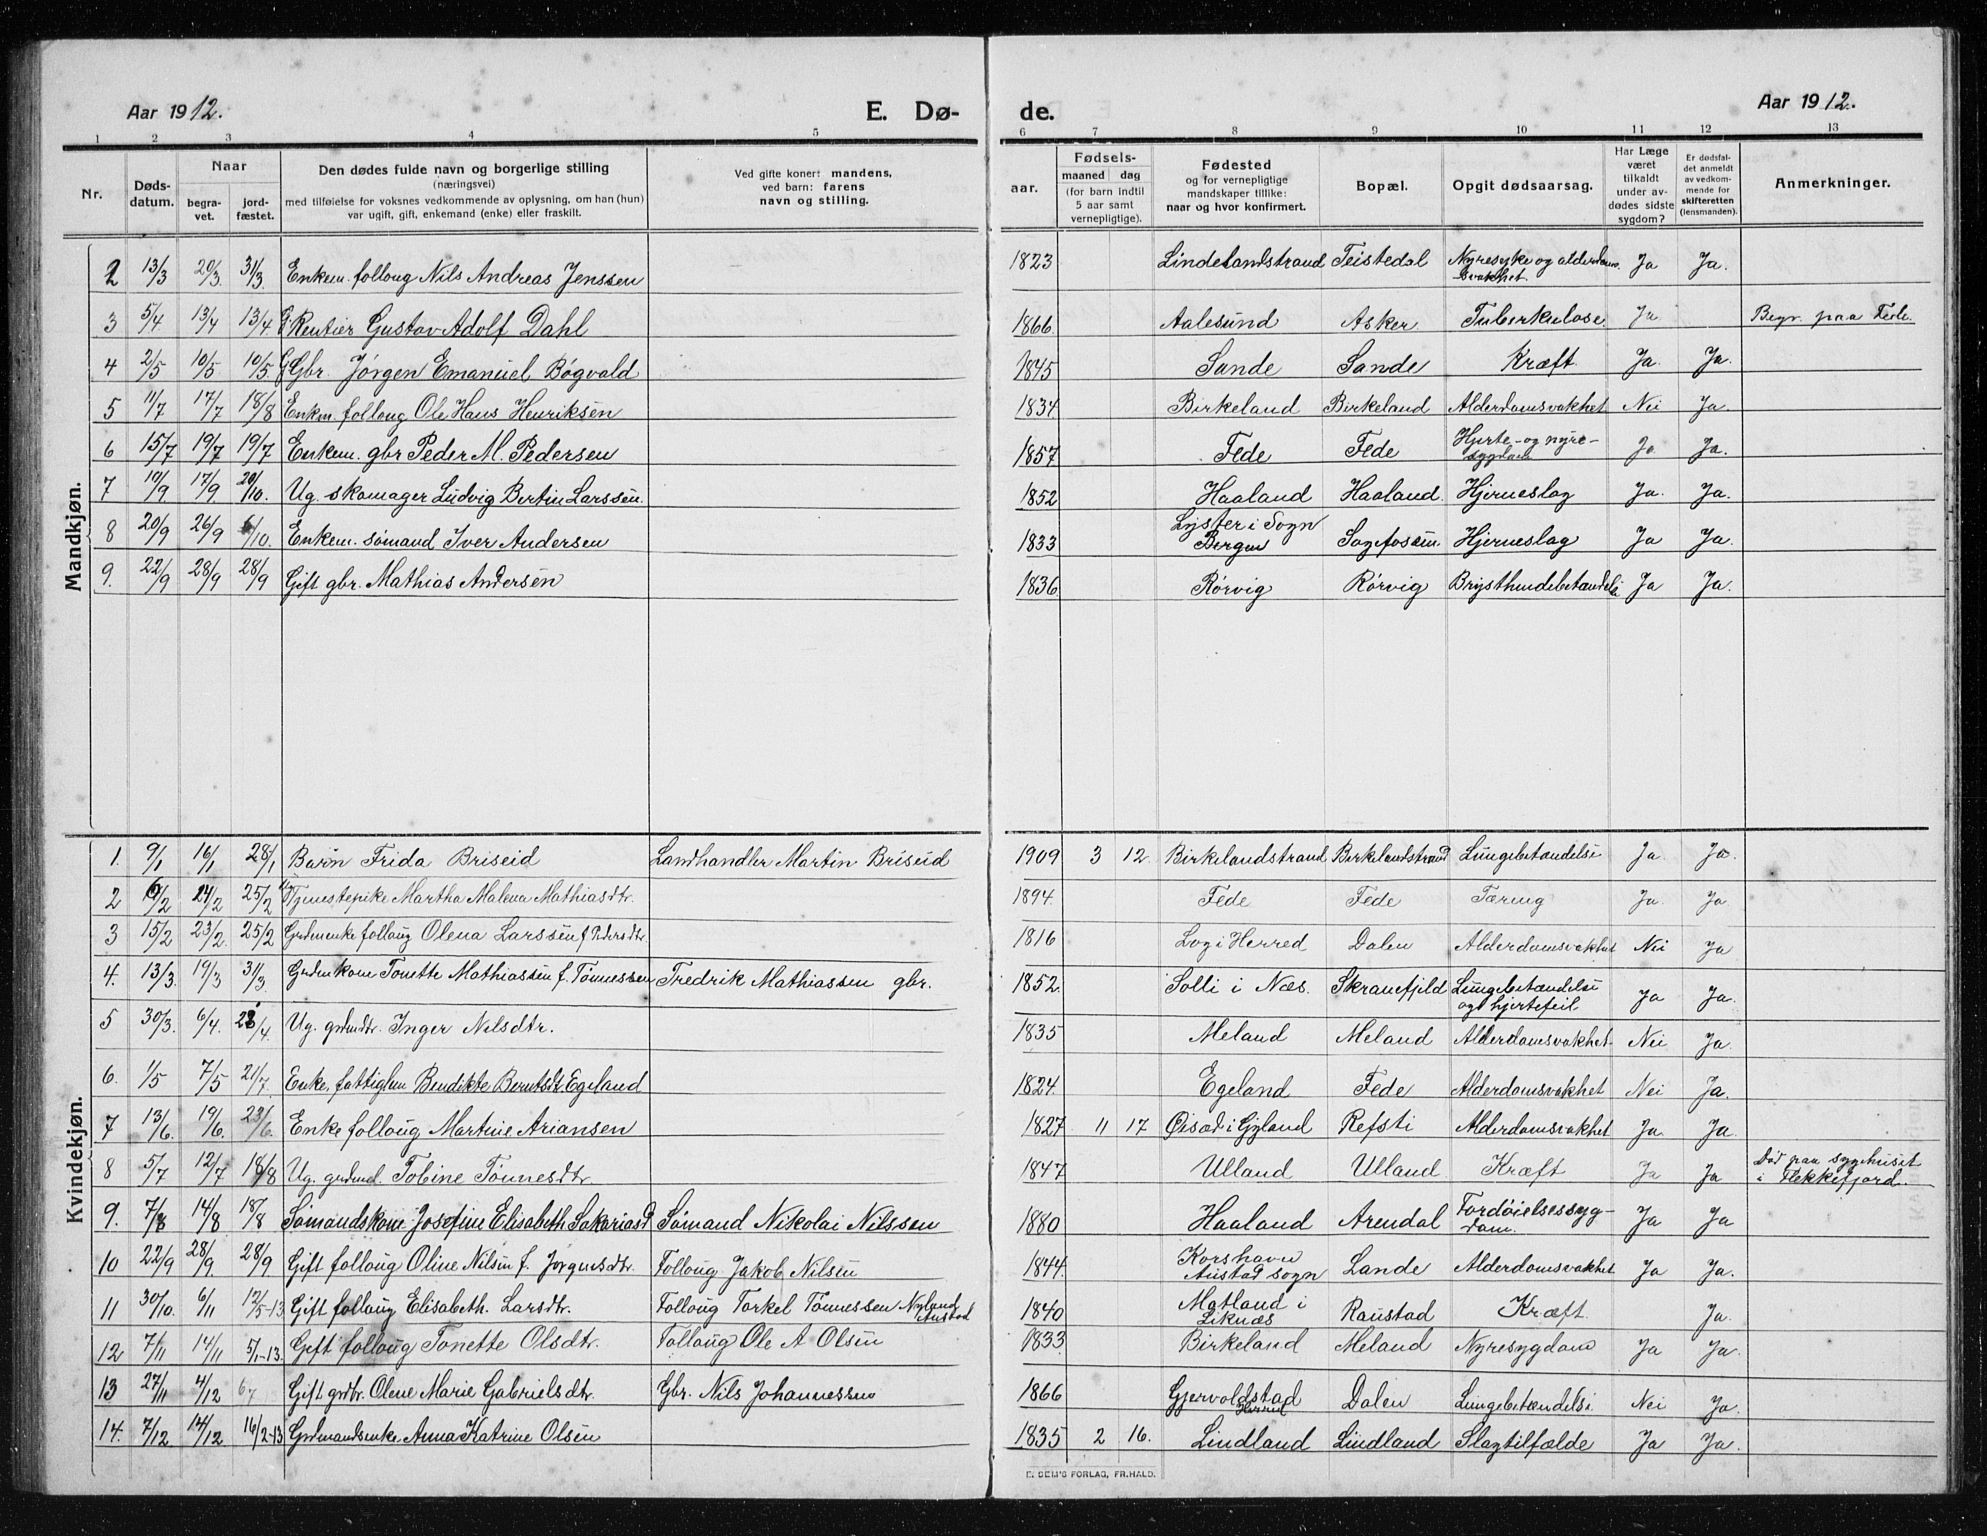 Aar 1912. E. Dø- de. Aar 1912.
1 2 3 4 5 6 7 8 9 10 11 12 13
Nr. Døds-datum. Naar begra-vet. jord-fæstet. Den dødes fulde navn og borgerlige stilling (næringsvei) med tilføielse for voksnes vedkommende av oplysning, om han (hun) var ugift, gift, enkemand (enke) eller fraskilt. Ved gifte koner: mandens, ved barn: farens navn og stilling. aar. Fødsels- maaned dag (for barn indtil 5 aar samt vernepligtige). Fødested og for vernepligtige mandskaper tillike: naar og hvor konfirmert. Bopæl. Opgit dødsaarsag. Har Læge været tilkaldt under av-dødes sidste sygdom? Er dødsfal-det anmeldt av vedkom-mende for skifteretten (lensmanden). Anmerkninger.
Mandkjøn.
2 13/3 20/3. 31/3 Enkem. follaug Nils Andreas Jenssen 1823 Lindelandstrand Feistedal Nyresyke og alderdoms-svakhet. Ja Ja.
3 5/4 13/4 13/4 G. Rentier Gustav Adolf Dahl 1866. Aalesund Asker Tuberkulose. Ja Begr. paa Fede.
4 2/5 10/5 10/5. G. Gbr. Jørgen Emanuel Bøgvald 1845 Sande Sande Kræft. Ja. Ja.
5 11/7 17/7 18/8 Enkm. follaug Ole Hans Henriksen 1834 Birkeland Birkeland Alderdomsvakhet Nei Ja.
6 15/7 19/7 19/7 Enkem. gbr Peder M. Pedersen 1857 Fede Fede Hjerte- og nyre-sygdom Ja Ja.
7 10/9 17/9 20/10. Ug. skomager Ludvig Bertin Larssen. 1852 Haaland Haaland. Hjerneslag Ja. Ja.
8 20/9 26/9 6/10. Enkem. sømand Iver Andersen 1833 Lyster i Sogn Bergen Hjerneslag Ja Ja.
9. 22/9 28/9 28/9 Gift gbr. Mathias Andersen 1836 Rørvig Rørvig Brysthindebetændelse Ja Ja.
Kvindekjøn.
1. 9/1 16/1 28/1 Barn Frida Briseid Landhandler Martin Briseid 1909 3 12. Birkelandstrand Birkelandstrand Lungebetændelse Ja. Ja.
2 6/2 24/2 25/2 Tjenestepike Martha Malena Mathiasdtr. 1894. Fede Fede Tæring Ja. Ja
3 15/2 23/2. 25/2 Grdmenke follaug Olena Larssen f. Pedersdtr. 1816 Log i Herred Dalen Alderdomsvakhet Nei Ja
4. 13/3. 19/3 31/3. Grdmkone Tonette Mathiassen f. Tønnessen Fredrik Mathiassen gbr. 1852. Solli i Næs. Skranefjeld Lungebetændelse og hjertefeil Ja Ja.
5 30/3. 6/4. 28/4 Ug. grdmdtr. Inger Nilsdtr. 1835 Meland Meland Alderdomsvakhet. Nei Ja.
6. 1/5 7/5 21/7. Enke, fattiglem Bendikte Berntsdtr. Egeland 1824. Egeland Fede Alderdomsvakhet Nei Ja.
7 13/6. 19/6. 23/6. Enke follaug Martine Ariansen 1827 11 17 Øisad i Gyland Refsti Alderdomsvakhet Ja. Ja.
8 5/7 12/7 18/8 Ug. grdmd. Tobine Tønnesdtr. 1847 Ulland Ulland Kræft Ja Ja Død paa sygehuset i Flekkefjord.
9. 7/8 14/8 18/8 Sømandskone Josefine Elisabeth Sakariasd Sømand Nikolai Nilssen 1880 Haaland Arendal Fordøielsessyg-dom. Ja Ja
10 22/9 28/9. 28/9 Gift follaug Oline Nilsen f. Jørgensdtr. Follaug Jakob Nilsen 1844. Korshavn Austad sogn Lande Alderdomsvakhet Ja Ja.
11 30/10. 6/11 12/5-13 Gift follaug Elisabeth Larsdtr. Follaug Torkel Tønnessen Nyland, Austad 1840 Matland i Liknæs Raustad Kræft. Ja.
12 7/11 14/11 5/1-13. Gift follaug Tonette Olsdtr. Follaug Ole A Olsen 1833 Birkeland Meland Nyresygdom Ja Ja.
13 27/11 4/12 6/ Gift grdbr. Olene Marie Gabrielsdtr. Gbr. Nils Johannessen 1866 Gjervoldstad Herred Dalen Lungebetændelse. Nei Ja.
14. 7/12. 14/12 16/2-13 Grdmandsenke Anna Katrine Olsen 1835 2 16. Lindland Lindland Slagtilfælde Ja Ja.
E. SEM'S FORLAG, FR.HALD.